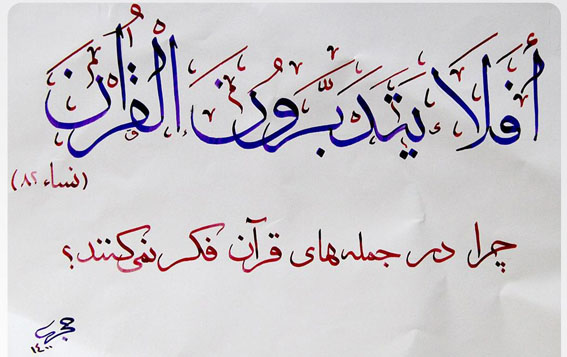 أَفَلَا يَتَدَبَّرُونَ الْقُرْآنَ
(نساء ۸۲)
چرا در جمله‌های قرآن فکر نمی‌کنند؟
۱۴۰۰